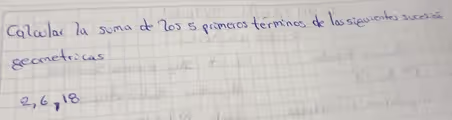 Calcular la suma de los 5 primeros términos de las siguientes sucesiones
geometricas
2, 6, 18